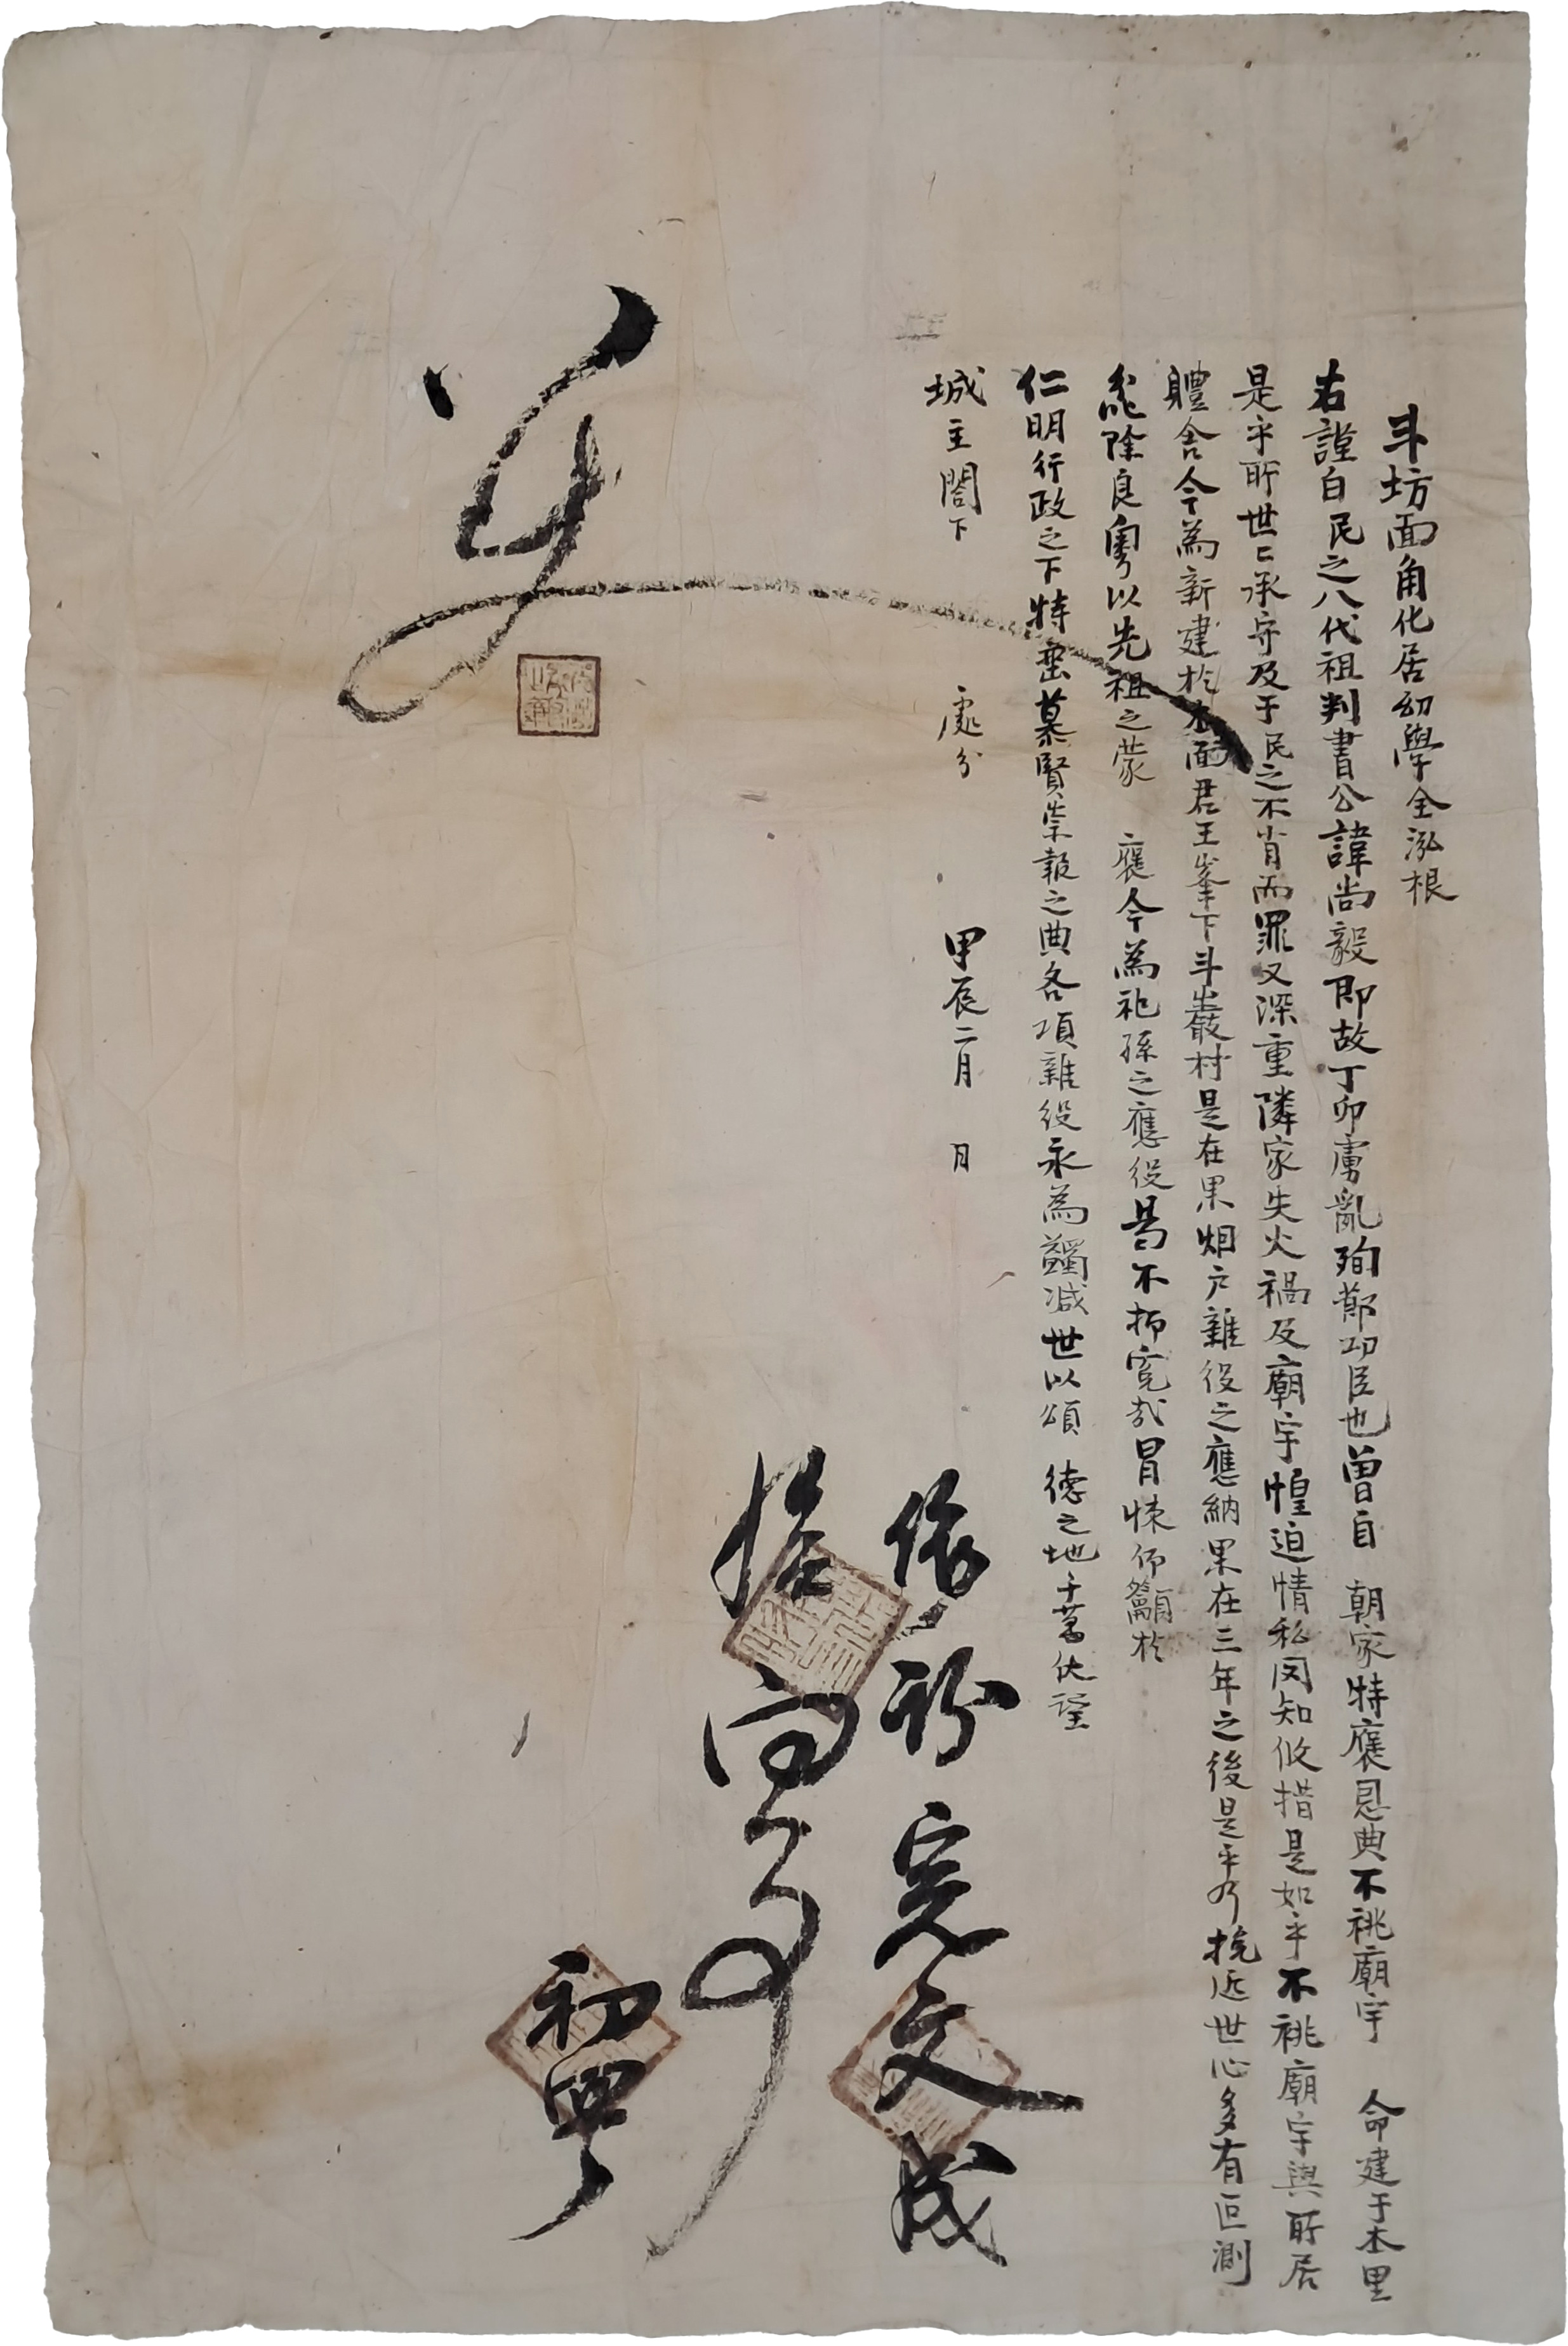 斗坊面角化居幼學全泓根
右謹白民之八代祖判書公諱尙毅即故丁卯虜亂殉節功臣也曾自 朝家特褒恩典不祧廟宇 命建于本里
是乎所世〻承守及于民之不肖而罪又深重隣家失火禍及廟宇惶迫情私罔知攸措是如乎不祧廟宇與所居
軆舍今為新建於本面君王峯下斗巖村是在果烟戶雜役之應納果在三年之後是乎乃挽近世心多有叵測
能除良粤以先祖之蒙 褒今為祀孫之應役曷不抑寃哉冒悚仰籲於
仁明行政之下特垂慕賢崇報之典各項雜役永為蠲减世以頌 德之地千萬伏望
城主閤下 處分 甲辰二月 日
依所完文成
給向事
初四